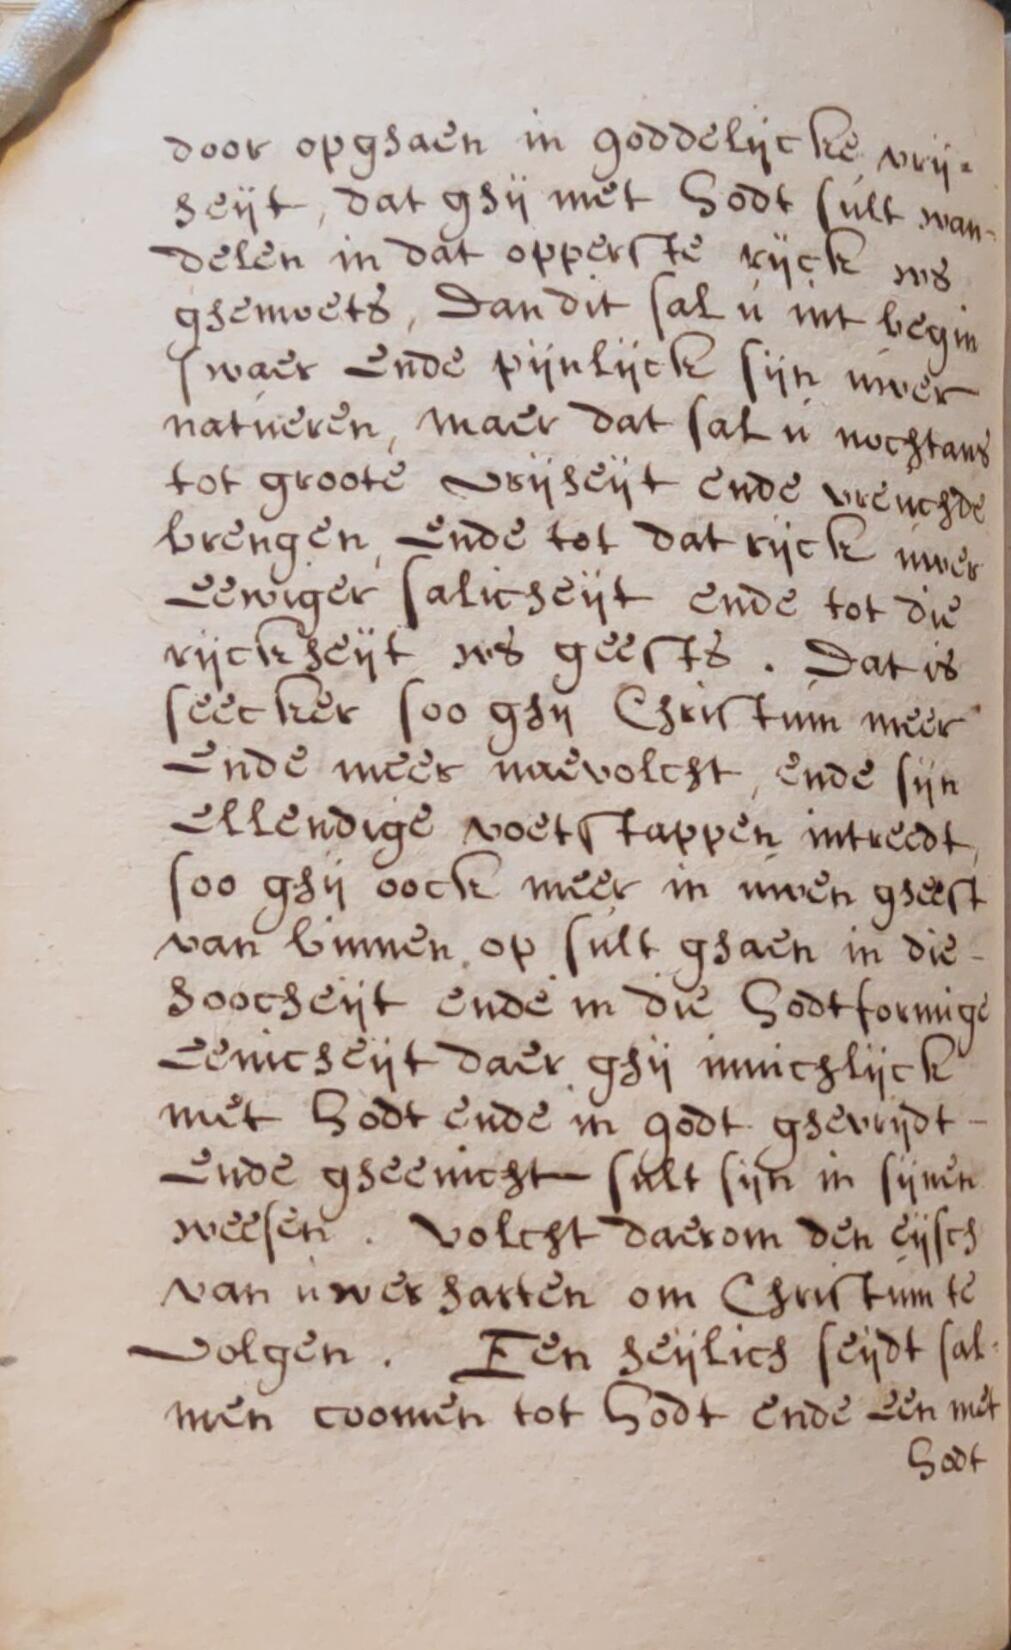 door opghaen in goddelijcke vrij-
heijt, dat ghij met Godt sult wan-
delen in dat opperste rijck ws
ghemoets, Dan dit sal u int begin
swaer ende pijnlijck sijn uwer
natueren, maer dat sal u nochtans
tot groote vrijheijt ende vreuchde
brengen, ende tot dat rijck uwer
eewiger salicheijt ende tot die
rijckheijt ws geests. Dat is
seecker soo ghij Christum meer
ende meer naevolcht, ende sijn
ellendige voetstappen intreedt,
soo ghij oock meer in uwen gheest
van binnen op sult ghaen in die
hoocheijt ende in die Godtformige
eenicheijt daer ghij innichlijck
met Godt ende in godt ghevrijdt
ende gheenicht sult sijn in sijnen
weesen. volcht daerom den eijsch
van uwer harten om Christum te
volgen. Een heijlich seijdt sal
men coomen tot Godt ende een met
Godt